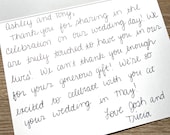 Ashley and Tony,
Thank you for sharing in the
celebration of our wedding day. We
are truly touched to have you in our
lives! We can't thank you enough
for your generous gift! We're so
excited to celebrate with you at
your wedding in May!
Love Josh and
Tricia